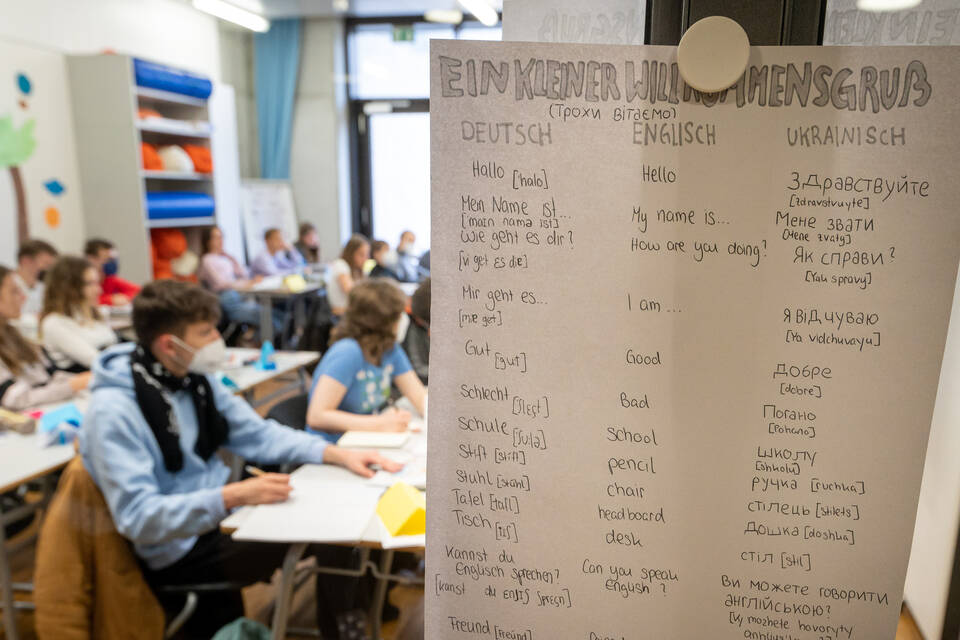 EIN KLEINER WILLKOMMENSGRUß
(Трохи вітаємо)
DEUTSCH ENGLISCH UKRAINISCH
Hallo ['halo] Hello Здравствуйте
[zdravstvuyte]
Mein Name ist... My name is... Мене звати
['maın namə ist] [Mene zvaty]
Wie geht es dir? How are you doing? Як справи?
[vi get ɛs diɐ] [Yak spravy]
Mir geht es... I am ... Я відчуваю
[Ya vidchuvayu]
Gut [gut] Good Добре
[dobre]
Schlecht Bad Погано
[Pohano]
Schule [ʃulə] School школу
[shkolu]
Stift [ʃtift] pencil ручка [ruchka]
Stuhl [ʃtuhl] chair стілець [stilets]
Tafel headboard Дошка [doshka]
Tisch [tıʃ] desk стіл [stil]
Kannst du Can you speak Ви можете говорити
Englisch sprechen? english? англійською?
[Vy mozhete hovoryty
Freund [Freund]